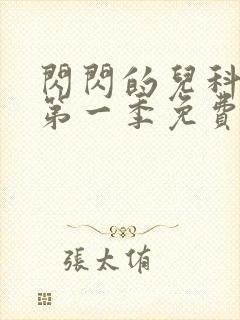 閃閃的兒科
第一季免費
張太侑